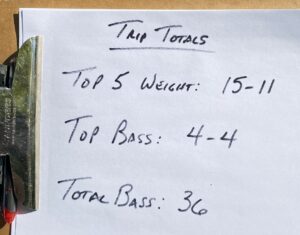 Trip Totals
Top 5 Weight: 15-11
Top Bass: 4-4
Total Bass: 36